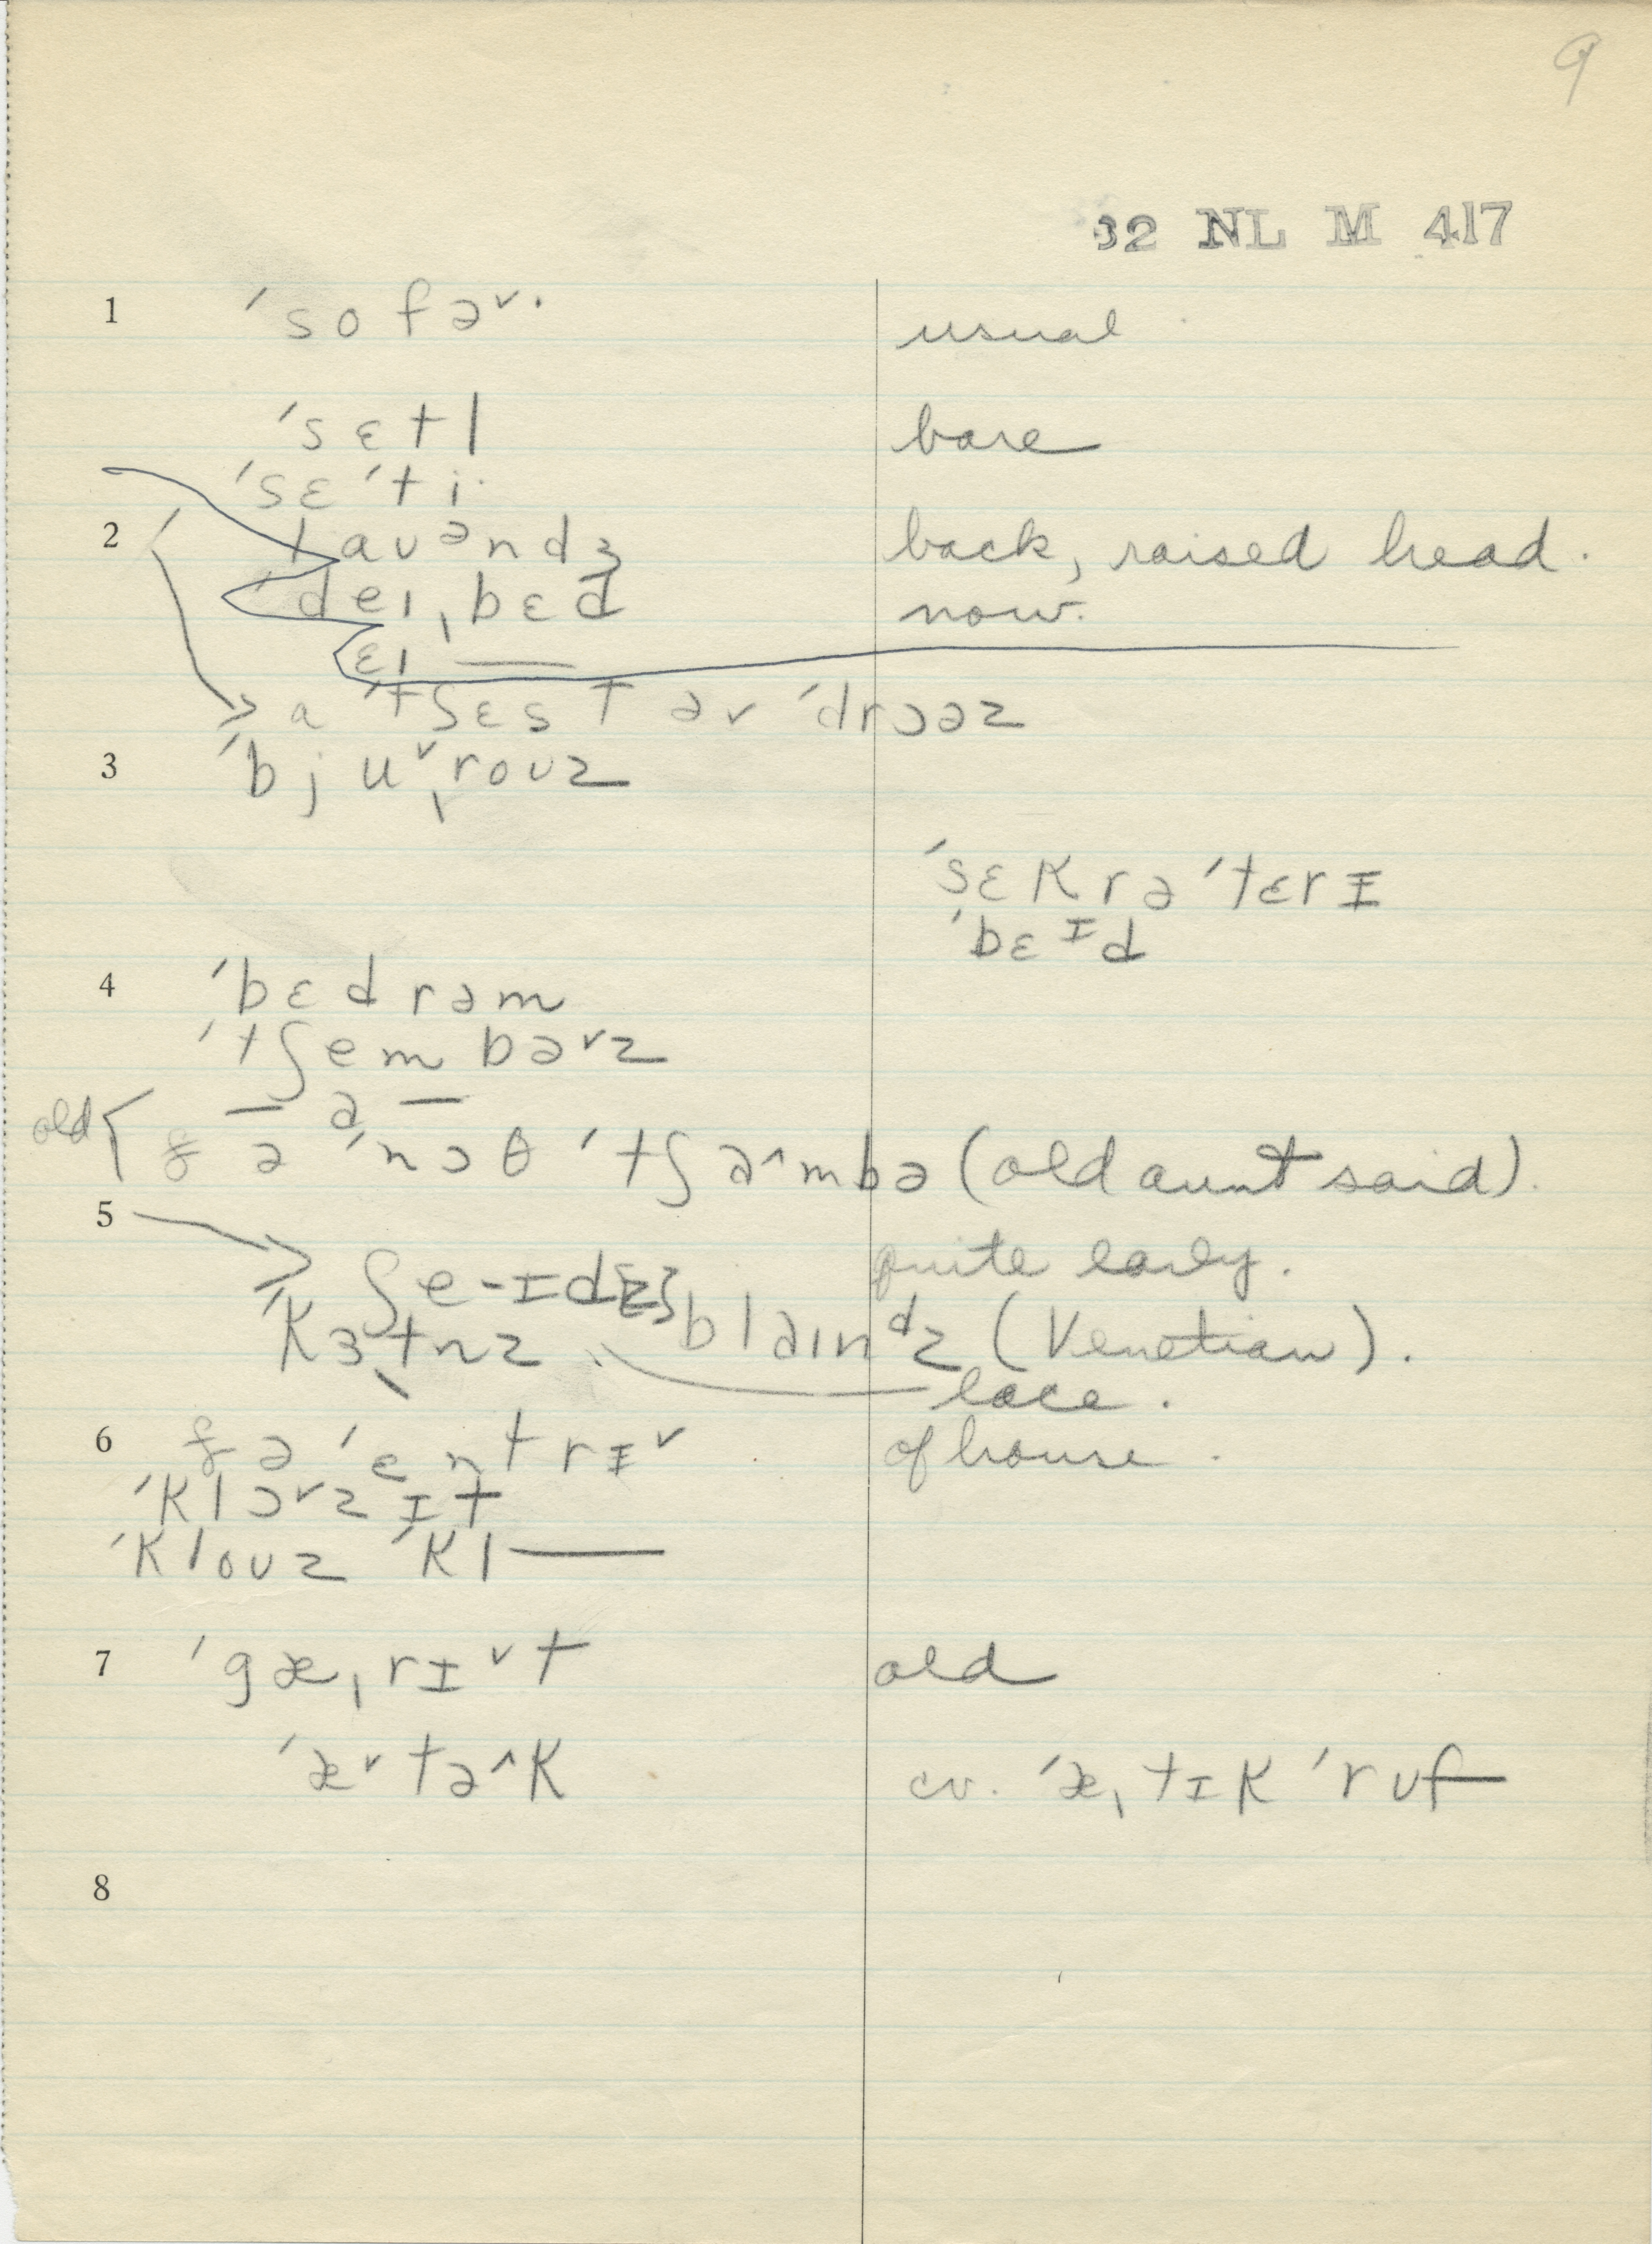 9
32 NL M 417
1 ˈsofə˅· usual
ˈsɛtl bare
ˈsɛˈti·
2 ˈlaʊəndʒ back, raised head.
ˈdeɪˌbɛd now.
ɛɪ —
a ˈtʃɛst əv ˈdrɔəz
3 ˈbju˅ˌroʊz
ˈsɛkrəˈtɛrɪ
ˈbɛɪd
4 ˈbɛdrəm
ˈtʃembə˅z
old — a —
ðə ˈnɔθ ˈtʃa^mbə (old aunt said).
5 quite early.
ʃe-ɪdz blaɪndz (Venetian).
ˈkɜtnz lace.
6 ðə ˈentrɪ˅ of house.
ˈklɔ˅zɪt
ˈkloʊz ˈkl—
7 ˈgæˌrɪ˅t old
ˈæ˅tə^k cv. ˈæˌtɪk ˈruf
8